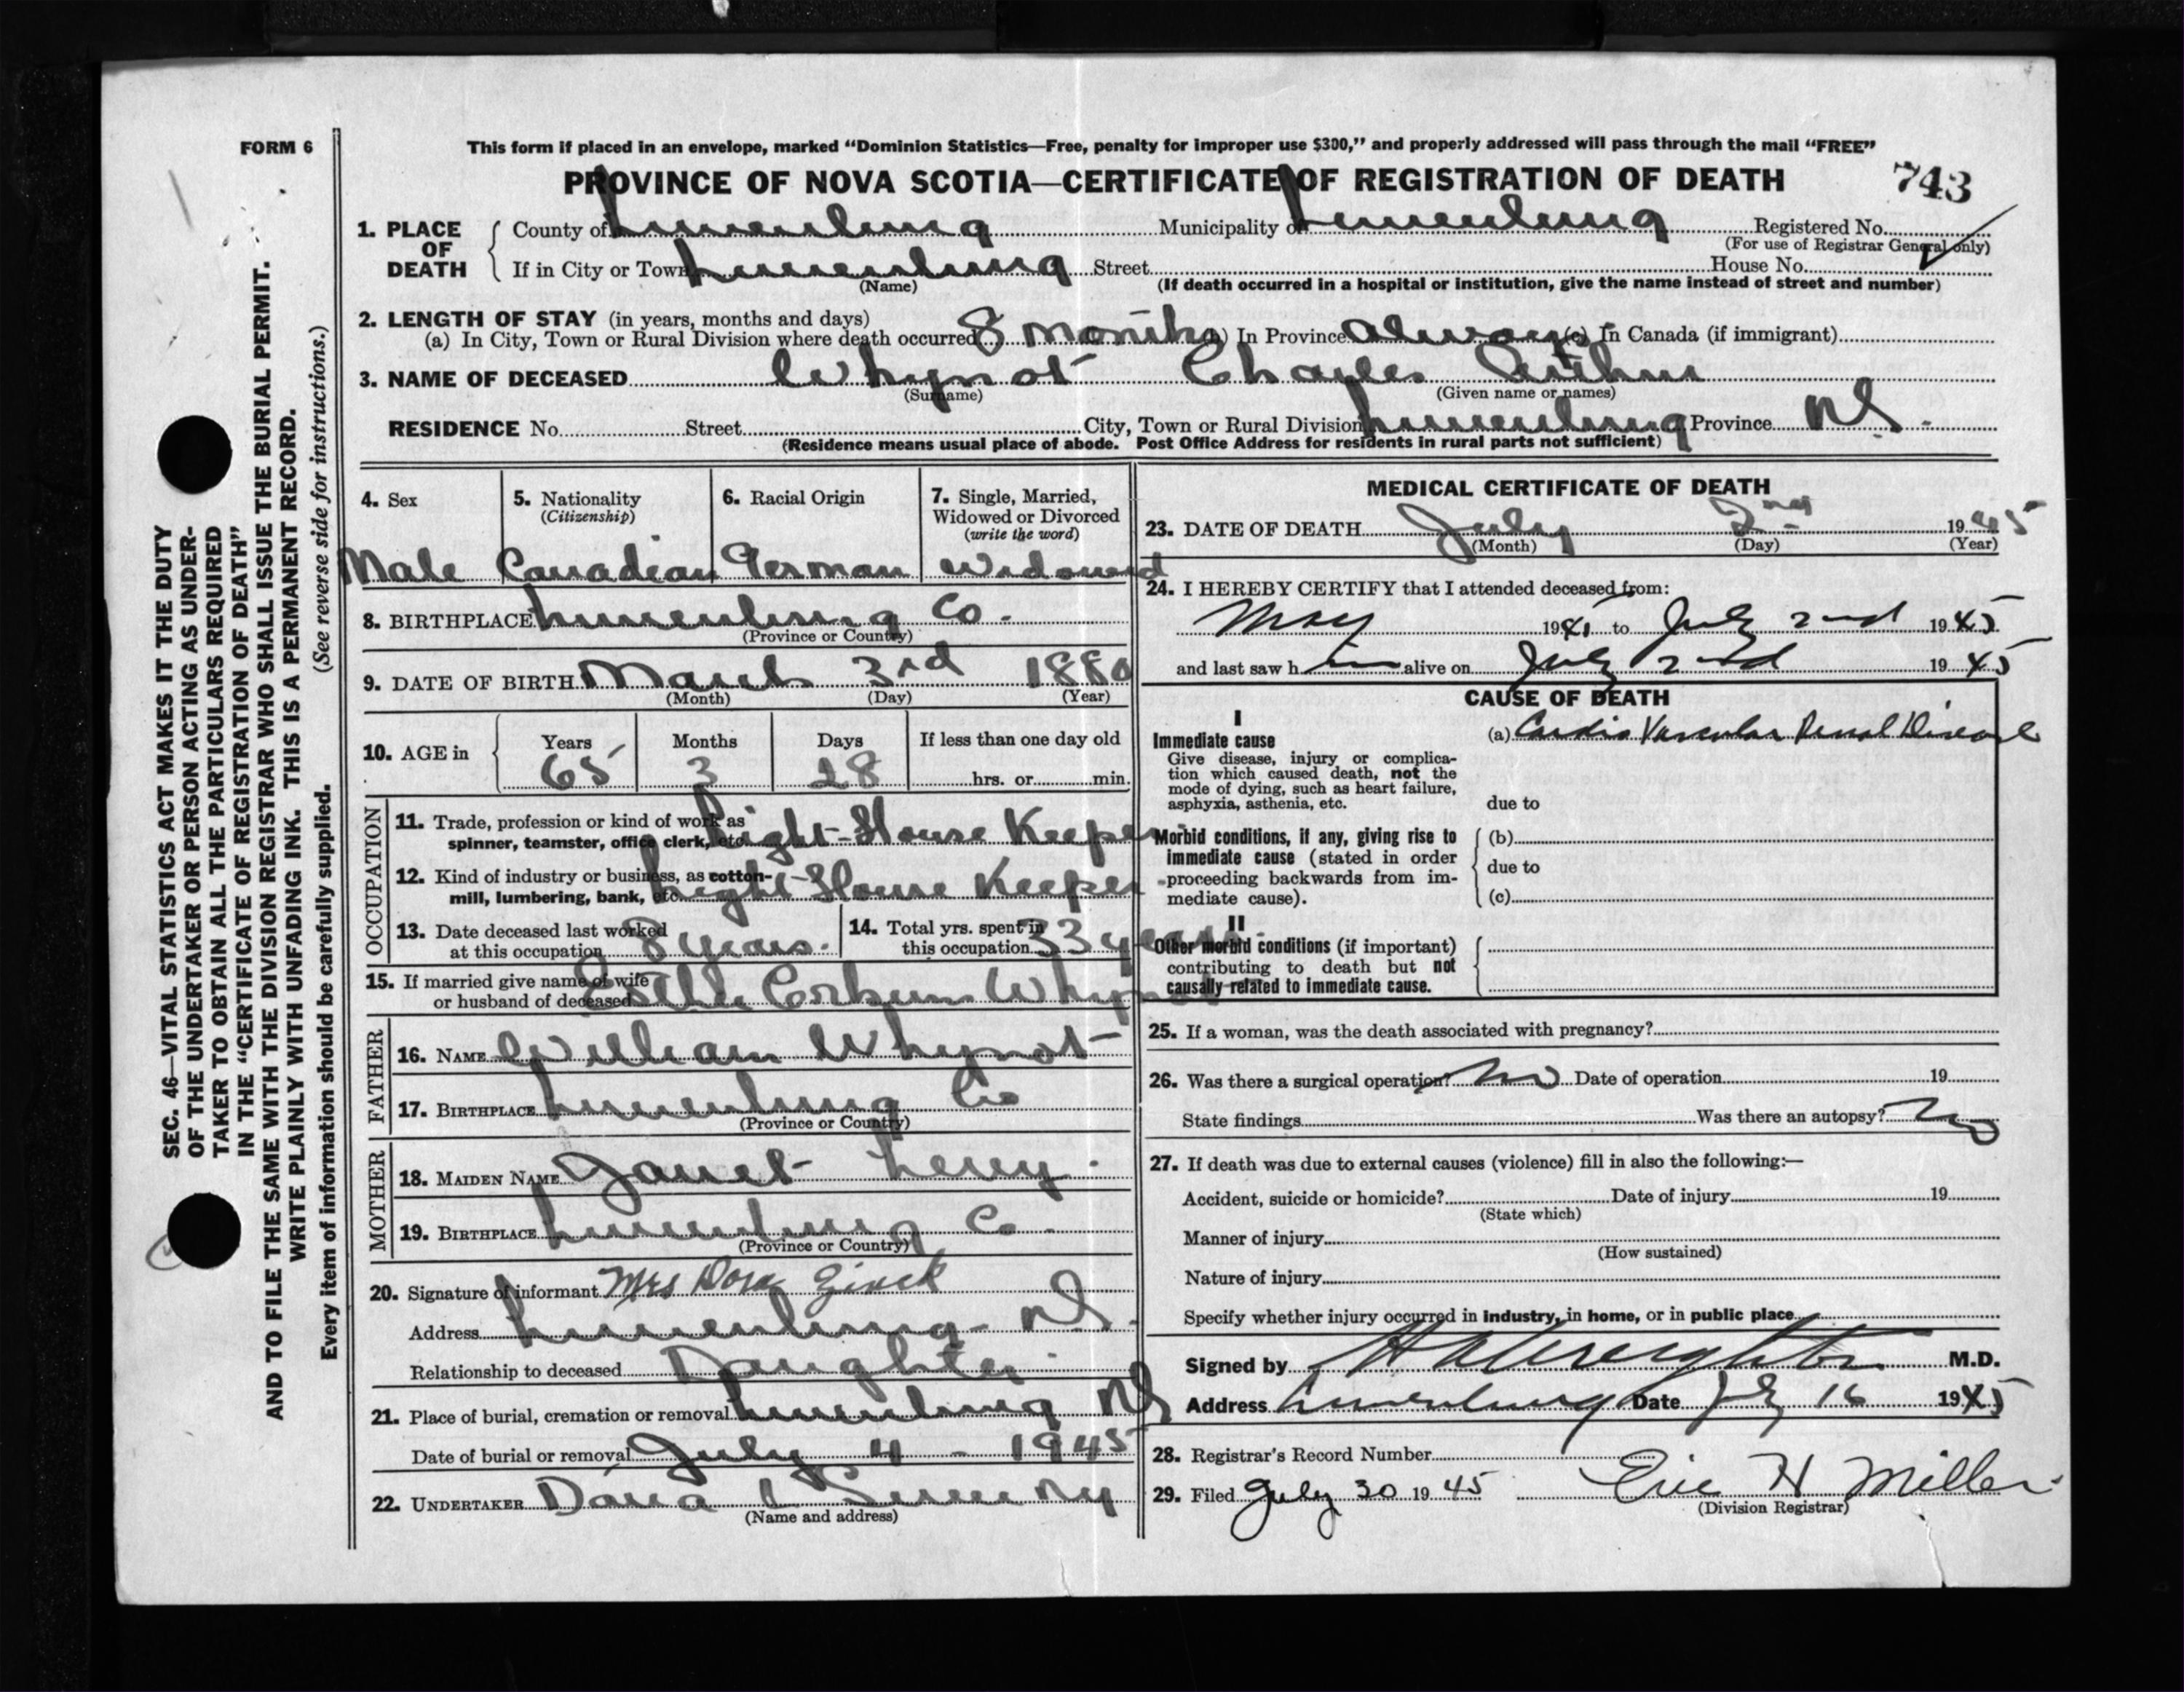 FORM 6
This form if placed in an envelope, marked “Dominion Statistics—Free, penalty for improper use $300,” and properly addressed will pass through the mail “FREE”
PROVINCE OF NOVA SCOTIA—CERTIFICATE OF REGISTRATION OF DEATH
743
1. PLACE OF DEATH County of Lunenburg Municipality of Lunenburg Registered No.
(For use of Registrar General only)
If in City or Town Lunenburg Street House No.
(Name) (If death occurred in a hospital or institution, give the name instead of street and number)
2. LENGTH OF STAY (in years, months and days)
(a) In City, Town or Rural Division where death occurred 8 months (b) In Province always (c) In Canada (if immigrant)
3. NAME OF DECEASED Whynot Charles Arthur
(Surname) (Given name or names)
RESIDENCE No. Street City, Town or Rural Division Lunenburg Province N.S.
(Residence means usual place of abode. Post Office Address for residents in rural parts not sufficient)
4. Sex 5. Nationality (Citizenship) 6. Racial Origin 7. Single, Married, Widowed or Divorced (write the word)
Male Canadian German Widowed
8. BIRTHPLACE Lunenburg Co.
(Province or Country)
9. DATE OF BIRTH March 3rd 1880
(Month) (Day) (Year)
10. AGE in Years Months Days If less than one day old
65 3 28 hrs. or min.
OCCUPATION
11. Trade, profession or kind of work as Light-House Keeper
spinner, teamster, office clerk, etc.
12. Kind of industry or business, as cotton- Light-House Keeper
mill, lumbering, bank, etc.
13. Date deceased last worked at this occupation 8 years. 14. Total yrs. spent in this occupation 33 years.
15. If married give name of wife
or husband of deceased Corkum Whynot
FATHER
16. NAME William Whynot
17. BIRTHPLACE Lunenburg Co
(Province or Country)
MOTHER
18. MAIDEN NAME Janet
19. BIRTHPLACE Lunenburg Co.
(Province or Country)
20. Signature of informant Mrs Dora Zinck
Address Lunenburg N.S.
Relationship to deceased Daughter
21. Place of burial, cremation or removal Lunenburg NS
Date of burial or removal July 4 - 1945
22. UNDERTAKER
(Name and address)
MEDICAL CERTIFICATE OF DEATH
23. DATE OF DEATH July 2nd 1945
(Month) (Day) (Year)
24. I HEREBY CERTIFY that I attended deceased from:
May 19 to July 2nd 1945
and last saw him alive on July 2nd 1945
CAUSE OF DEATH
I
Immediate cause (a) Cardio Vascular Renal Disease
Give disease, injury or complica-
tion which caused death, not the
mode of dying, such as heart failure,
asphyxia, asthenia, etc. due to
Morbid conditions, if any, giving rise to (b)
immediate cause (stated in order
proceeding backwards from im- due to
mediate cause). (c)
II
Other morbid conditions (if important)
contributing to death but not
causally related to immediate cause.
25. If a woman, was the death associated with pregnancy?
26. Was there a surgical operation? No Date of operation 19
State findings Was there an autopsy? No
27. If death was due to external causes (violence) fill in also the following:—
Accident, suicide or homicide? Date of injury 19
(State which)
Manner of injury
(How sustained)
Nature of injury
Specify whether injury occurred in industry, in home, or in public place
Signed by M.D.
Address Lunenburg Date July 16 1945
28. Registrar's Record Number
29. Filed July 30 1945 Eric H Miller
(Division Registrar)
SEC. 46—VITAL STATISTICS ACT MAKES IT THE DUTY
OF THE UNDERTAKER OR PERSON ACTING AS UNDER-
TAKER TO OBTAIN ALL THE PARTICULARS REQUIRED
IN THE “CERTIFICATE OF REGISTRATION OF DEATH”
AND TO FILE THE SAME WITH THE DIVISION REGISTRAR WHO SHALL ISSUE THE BURIAL PERMIT.
WRITE PLAINLY WITH UNFADING INK. THIS IS A PERMANENT RECORD.
(See reverse side for instructions.)
Every item of information should be carefully supplied.